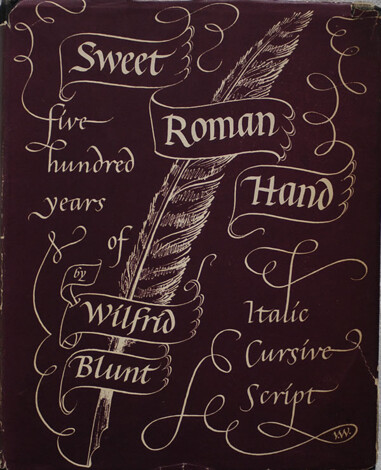 Sweet
Roman
Hand
five
hundred
years
of
Italic
Cursive
Script
by
Wilfrid
Blunt